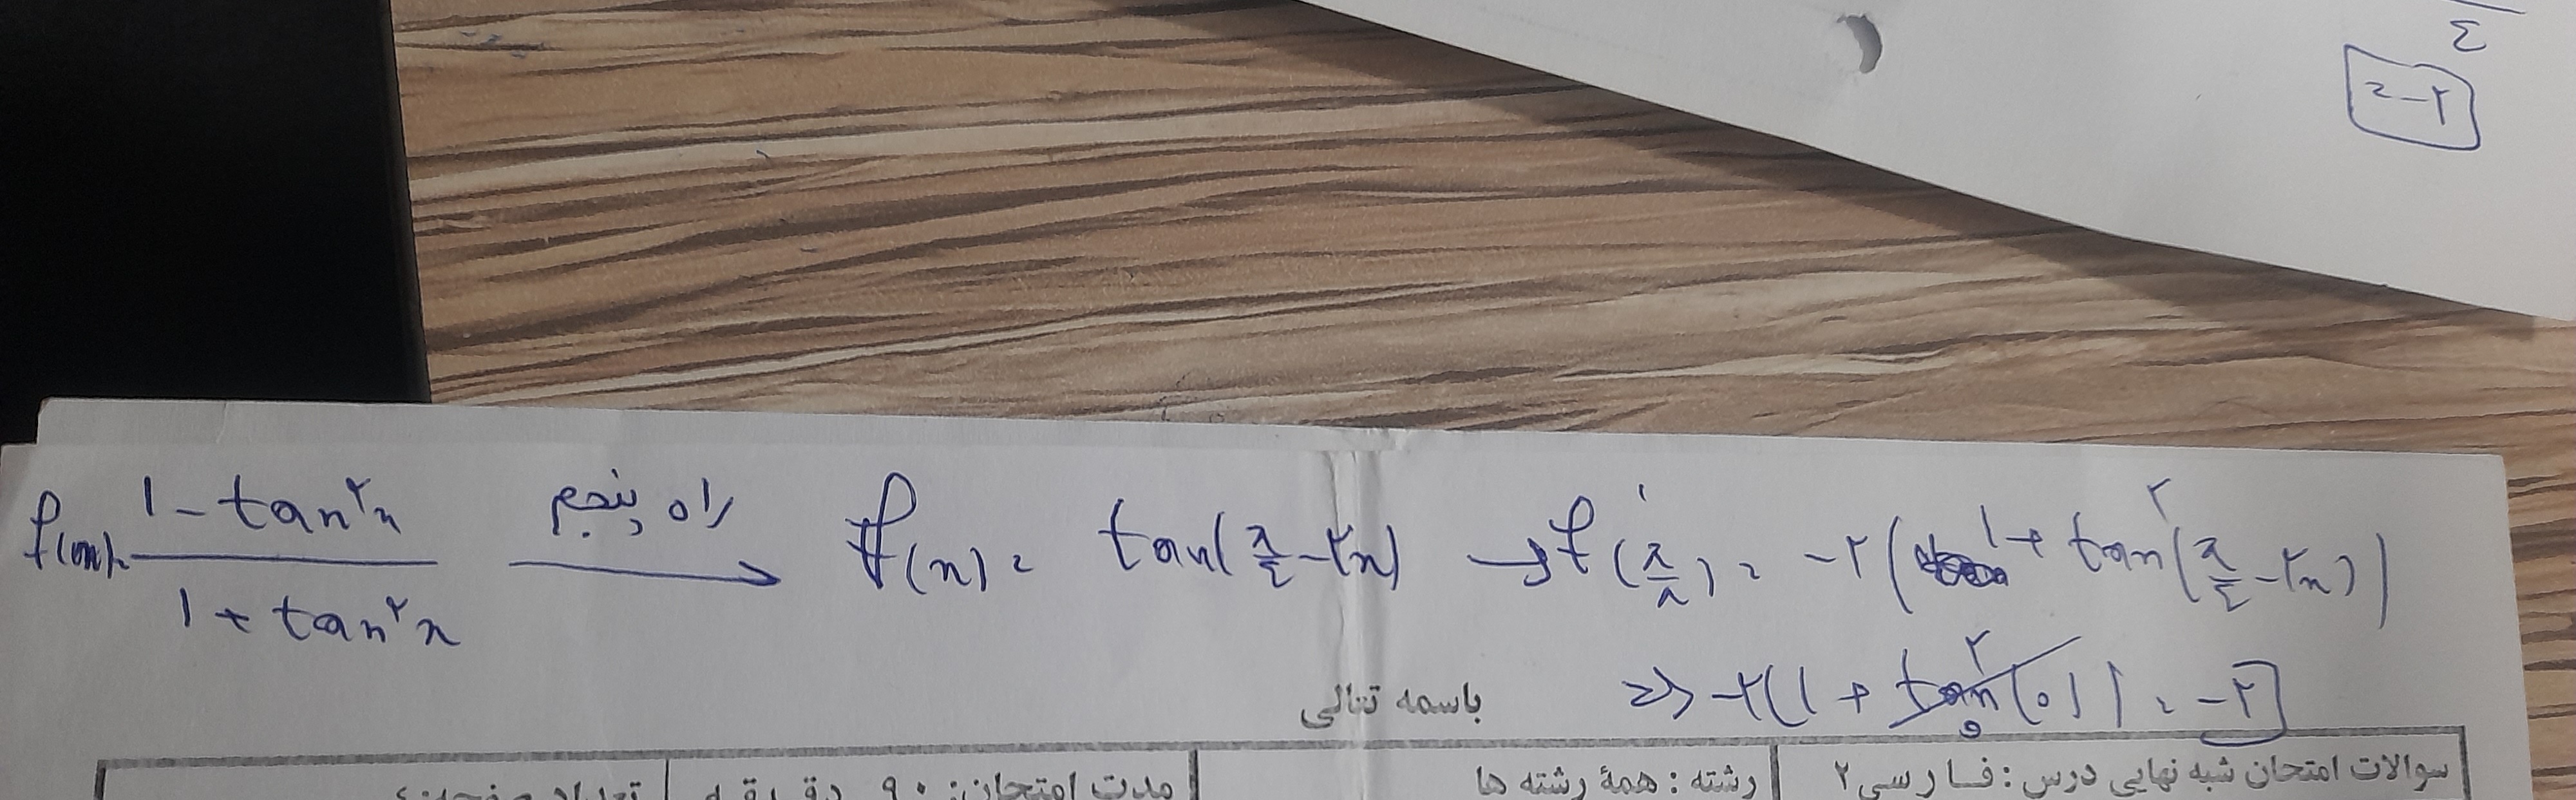 ٤
= -۲
f(x) = (1 - tan^۲ x) / (1 + tan^۲ x) راه پنجم → f(x) = tan(π/٤ - ۲x) → f'(π/۸) = -۲(1 + tan^۲(π/٤ - ۲x))
=> -۲(1 + tan^۲(0)) = -۲
باسمه تعالی
سوالات امتحان شبه نهایی درس : فارسی ۲ رشته : همهٔ رشته ها مدت امتحان: ۹۰ دقیقه تعداد صفحه: ٤